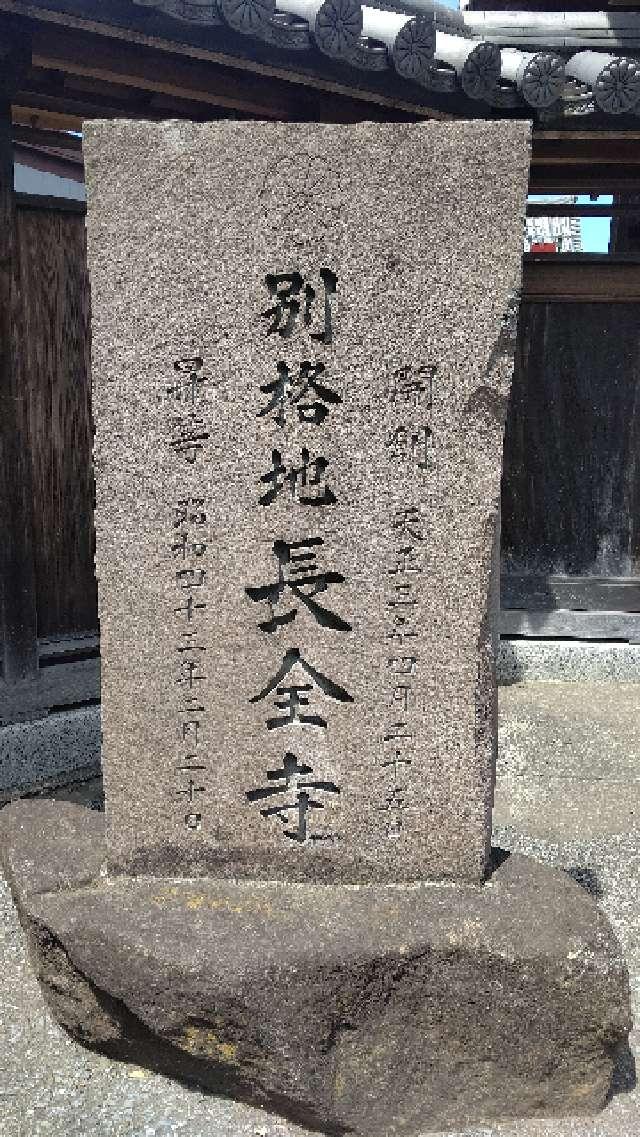 開創 天正三年四月二十五日
別格地長全寺
昇等 昭和四十三年二月二十日